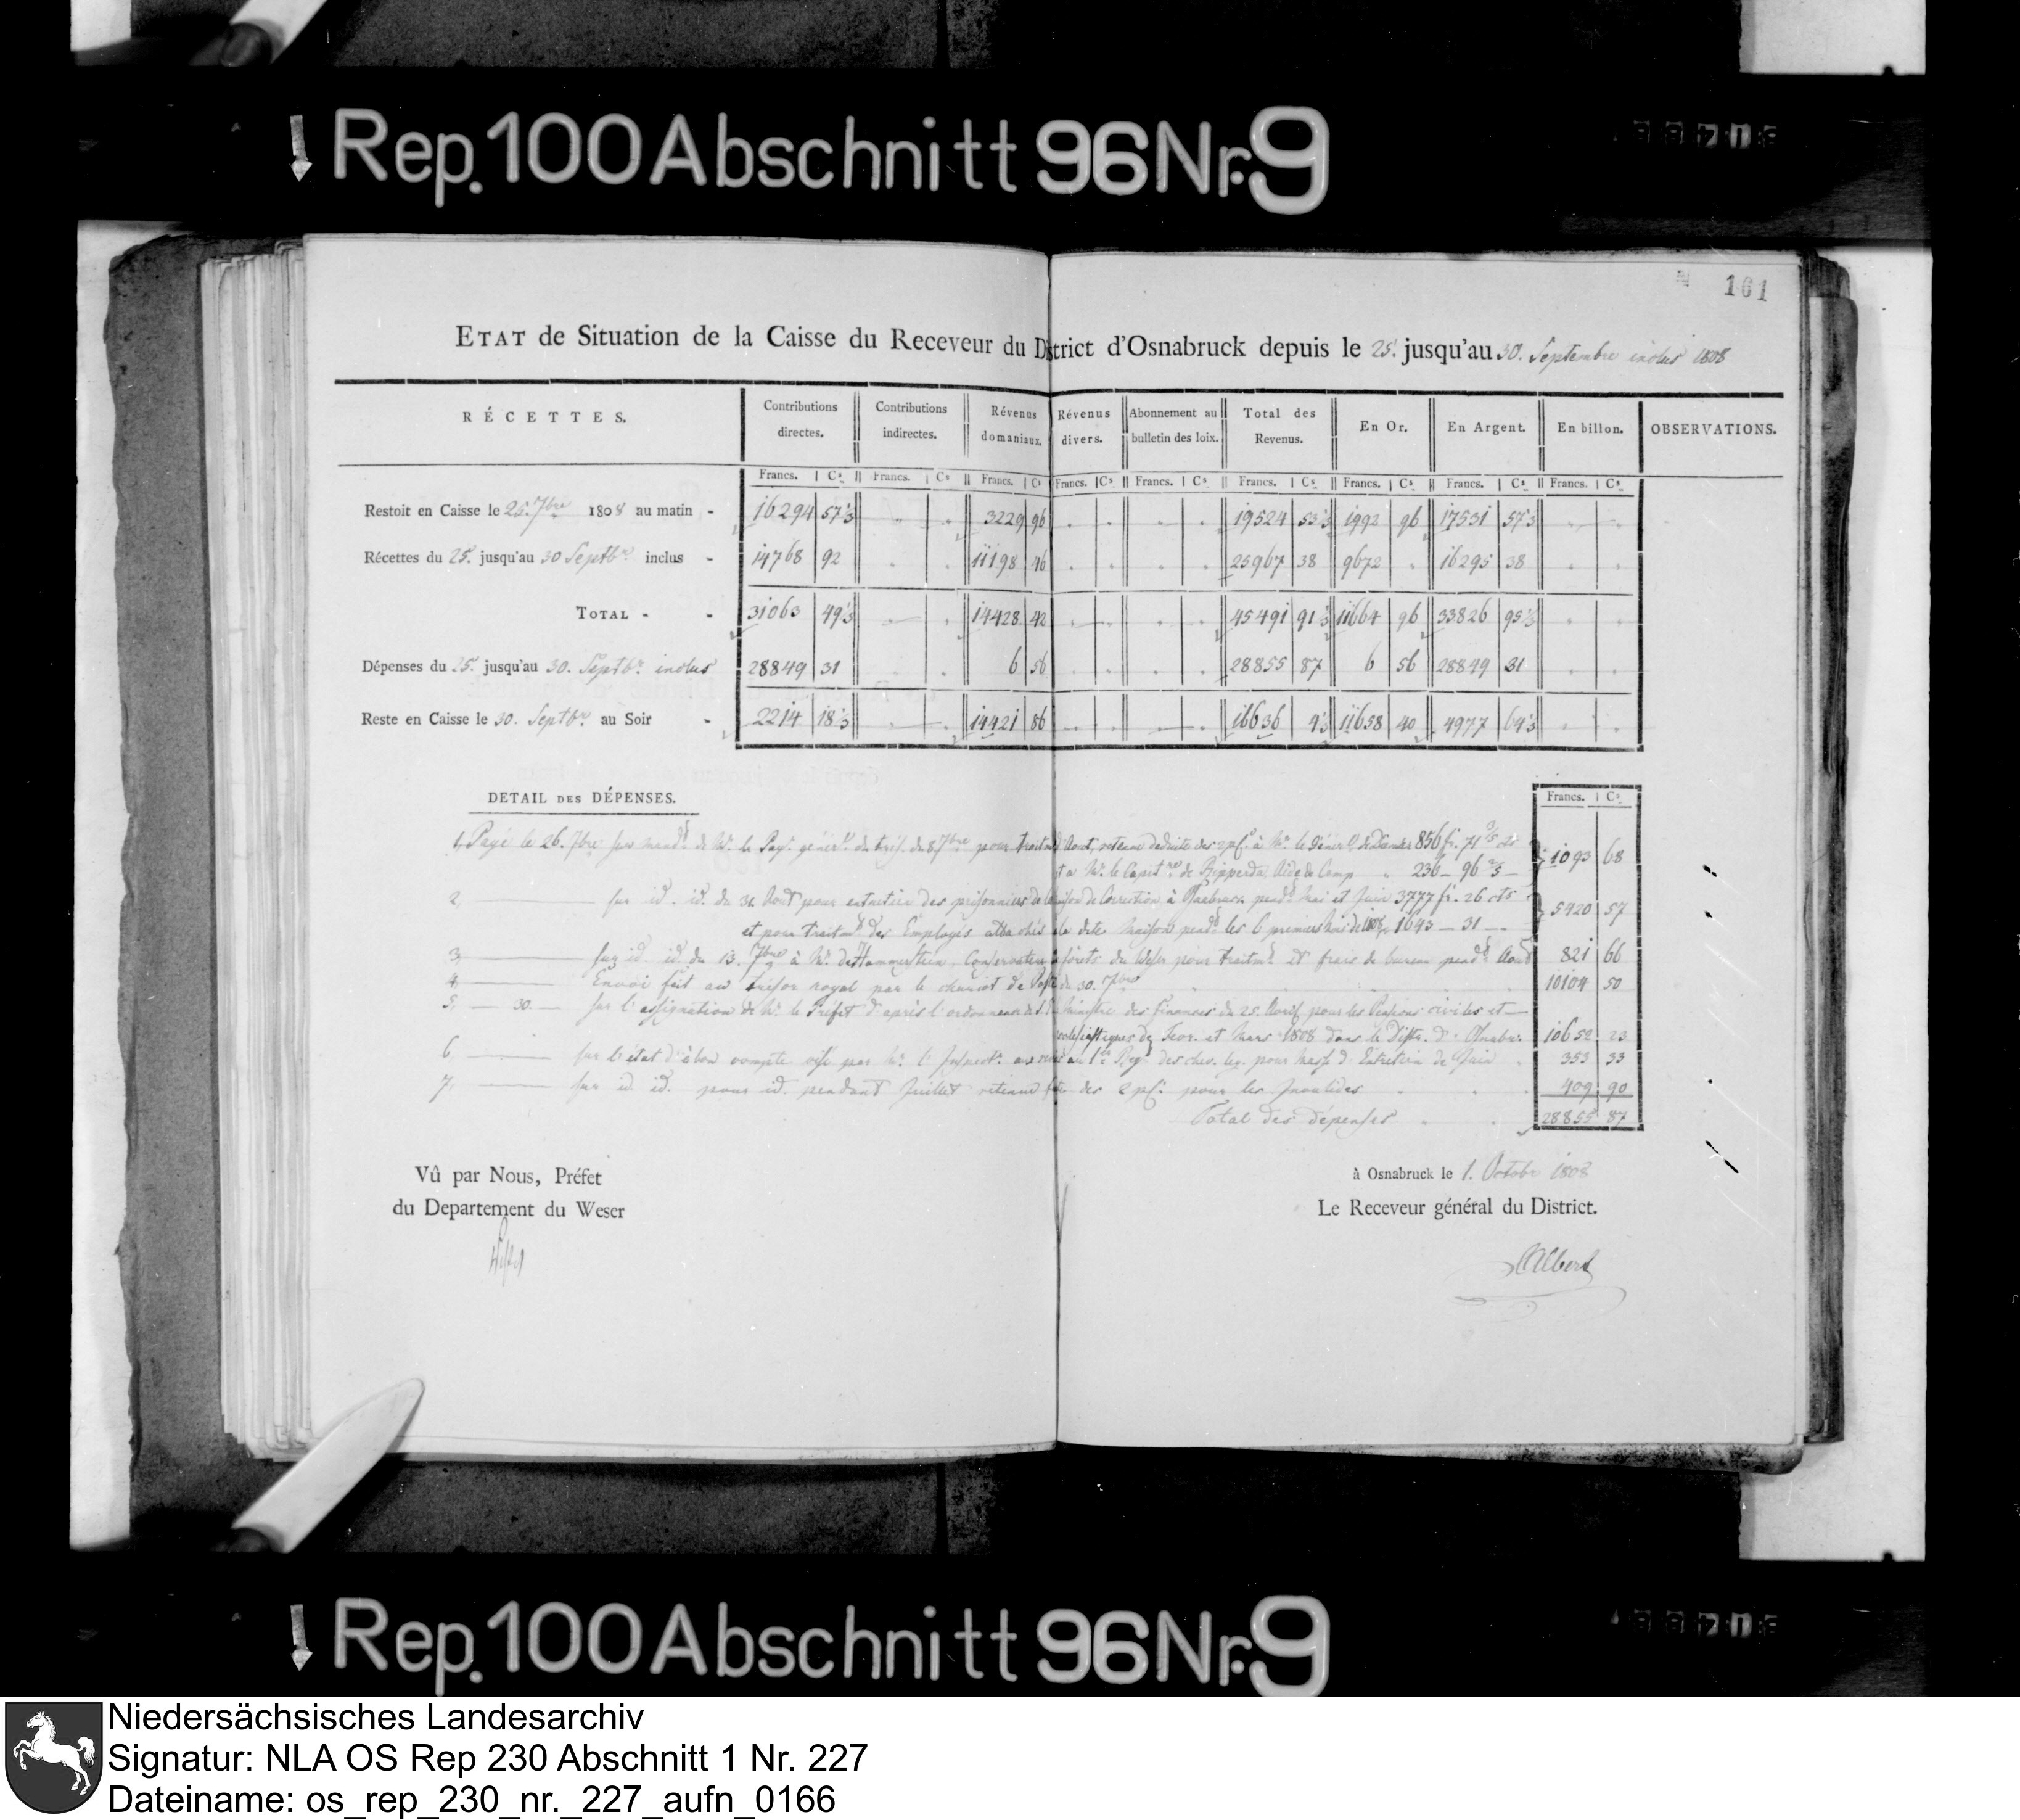 Rep. 100 Abschnitt 96 Nr. 9
161
ETAT de Situation de la Caisse du Receveur du District d'Osnabruck depuis le 25. jusqu'au 30. Septembre inclus 1808
RÉCETTES. Contributions directes. Contributions indirectes. Révenus domaniaux. Révenus divers. Abonnement au bulletin des loix. Total des Revenus. En Or. En Argent. En billon. OBSERVATIONS.
Francs. Cs. Francs. Cs Francs. Cs Francs. Cs. Francs. Cs. Francs. Cs. Francs. Cs. Francs. Cs. Francs. Cs.
Restoit en Caisse le 25. 7bre 1808 au matin - 16294 57⅓ 3229 96 19524 53⅓ 1992 96 17531 57⅓
Récettes du 25. jusqu'au 30 Septbr. inclus - 14768 92 11198 46 25967 38 9672 16295 38
TOTAL - - 31063 49⅓ 14428 42 45491 91⅓ 11664 96 33826 95⅓
Dépenses du 25. jusqu'au 30. Septbr. inclus 28849 31 6 56 28855 87 6 56 28849 31
Reste en Caisse le 30. Septbr. au Soir - 2214 18⅓ 14421 86 16636 4⅓ 11658 40 4977 64⅓
DETAIL DES DÉPENSES. Francs. Cs
1, Payé le 26. 7bre sur mandt de Mr. le Pay. génér. du trés. du 8 7bre pour traitmt d'Aout, retenue deduite des 2 pf. à Mr. le Génér. 856 fr. 71
et a Mr. le Capit. de Ripperda Aide de Camp 236 - 96 - 1093 68
2, sur id. id. du 31 Aout pour entretien des prisonniers de la Maison de Correction à Osnabruck pendt Mai et Juin 3777 fr. 26 cts
et pour traitmt des Employés attachés a la dite Maison pendt les 6 premiers Mois de 1808, 1643 - 31 - 5420 57
3, sur id. id. du 13. 7bre à Mr. de Hammerstein, Conservateur des forêts du Weser pour traitmt et frais de bureau pendt Aout 821 66
4, Envoi fait au trésor royal par le chariot de Poste du 30. 7bre 10104 50
5, - 30 - sur l'assignation de Mr. le Préfet d'après l'ordonnance du Ministre des finances du 25. Avril pour les Pensions civiles et
ecclésiastiques de Fevr. et Mars 1808 dans le Distr. d'Osnabr. 10652 23
6, sur l'état d'àbon compte visé par Mr. l'Inspect. aux revues au 1er Regt des chev. leg. pour Masse d'Entretien de Juin 353 33
7, sur id. id. pour id. pendant Juillet retenue faite des 2 pf. pour les Invalides 409 90
Total des dépenses 28855 87
Vû par Nous, Préfet
du Departement du Weser
à Osnabruck le 1. Octobr 1808
Le Receveur général du District.
Albert
Rep. 100 Abschnitt 96 Nr. 9
Niedersächsisches Landesarchiv
Signatur: NLA OS Rep 230 Abschnitt 1 Nr. 227
Dateiname: os_rep_230_nr._227_aufn_0166